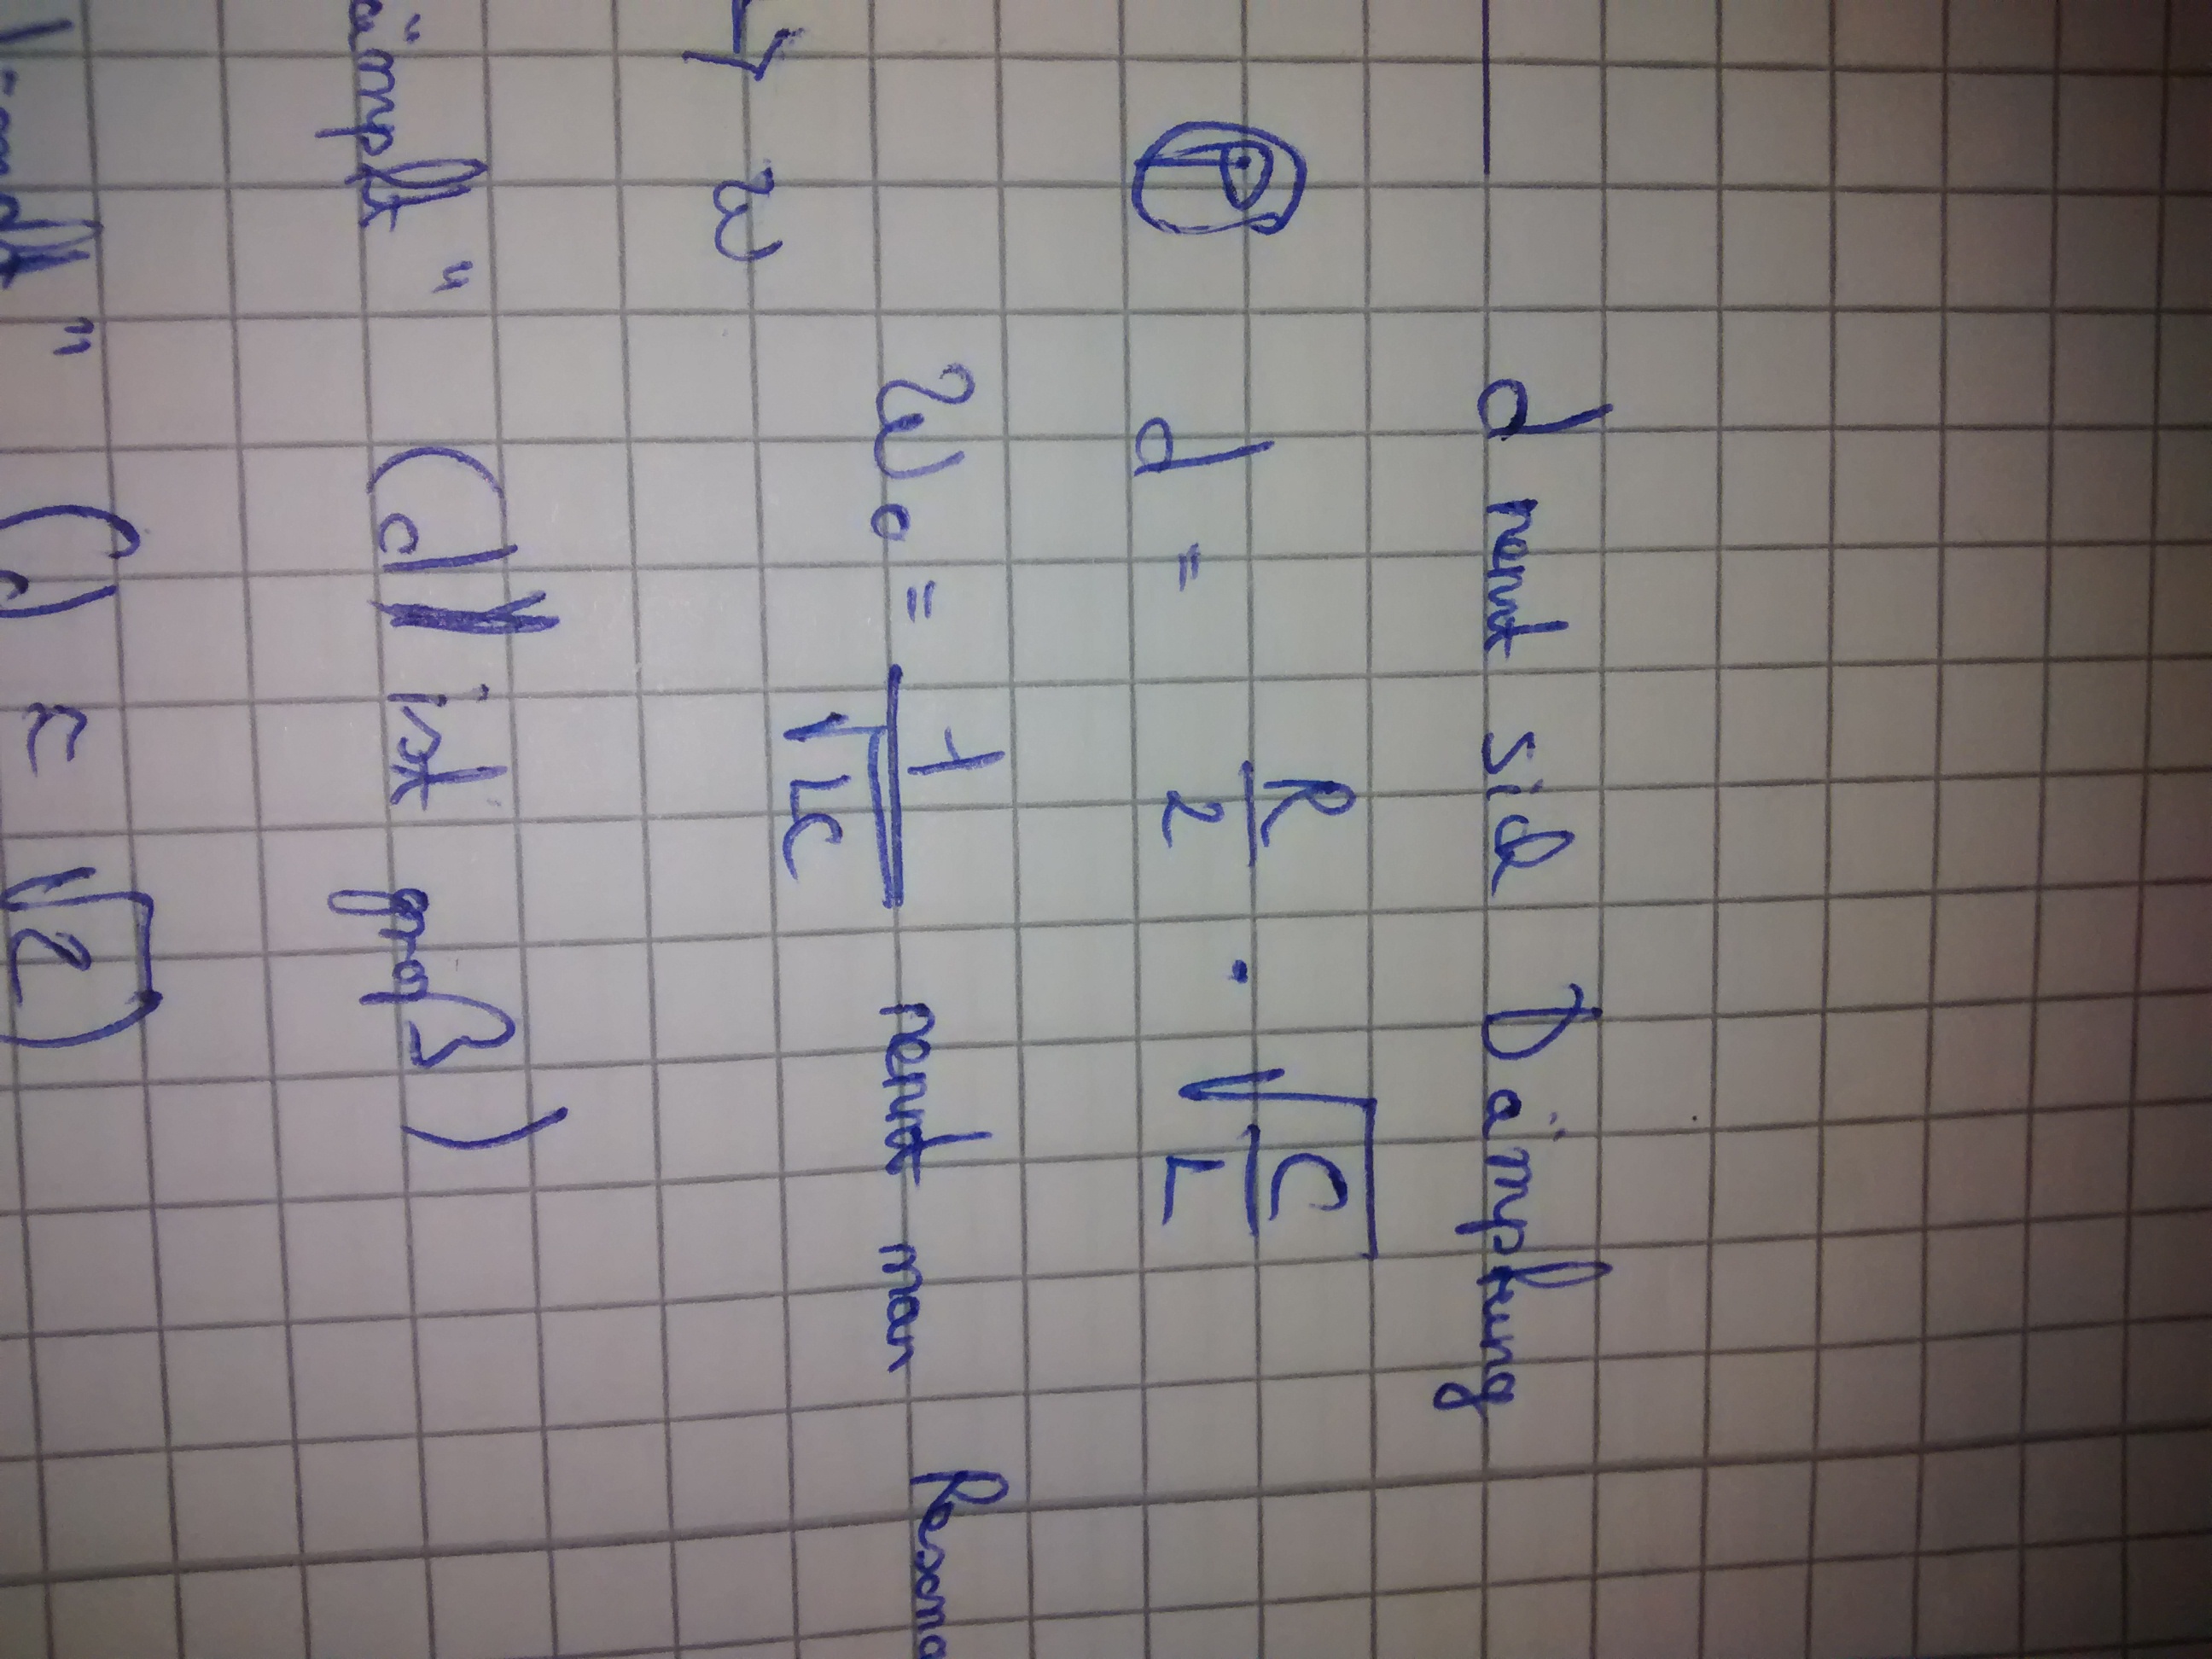 d nennt sich Dämpfung
d = R/2 · √(C/L)
ω
ω₀ = 1/√LC nennt man Resona
ämpft" (d ist groß)
"
(d = √2)